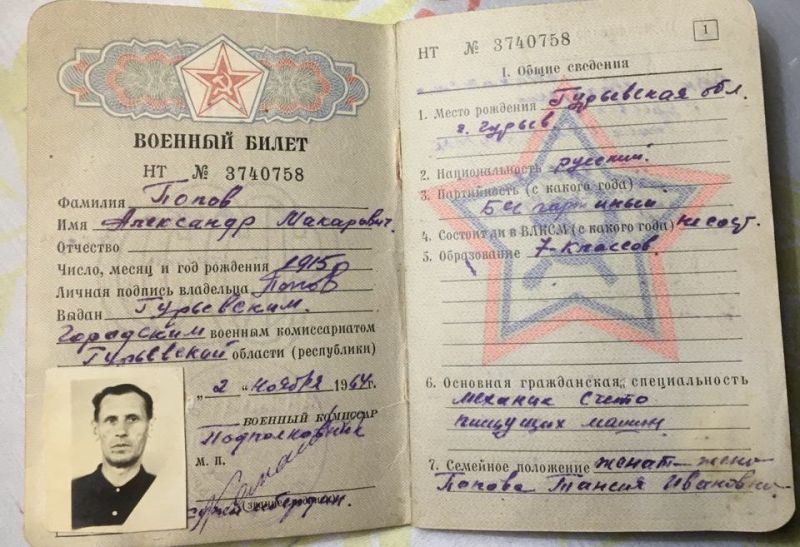 ВОЕННЫЙ БИЛЕТ
НТ № 3740758
Фамилия Попов
Имя Александр Макарович.
Отчество
Число, месяц и год рождения 1915
Личная подпись владельца Попов
Выдан Гурьевским
Городским военным комиссариатом
Гурьевской области (республики)
„ 2 “ ноября 1964г.
ВОЕННЫЙ КОМИССАР
Подполковник
М. П.
НТ № 3740758
1
I. Общие сведения
1. Место рождения Гурьевская обл.
г. Гурьев
2. Национальность русский.
3. Партийность (с какого года)
Беспартийный
4. Состоит ли в ВЛКСМ (с какого года) не сост.
5. Образование 7-классов.
6. Основная гражданская специальность
механик счето
пишущих машин
7. Семейное положение женат-жена
Попова Таисия Ивановна